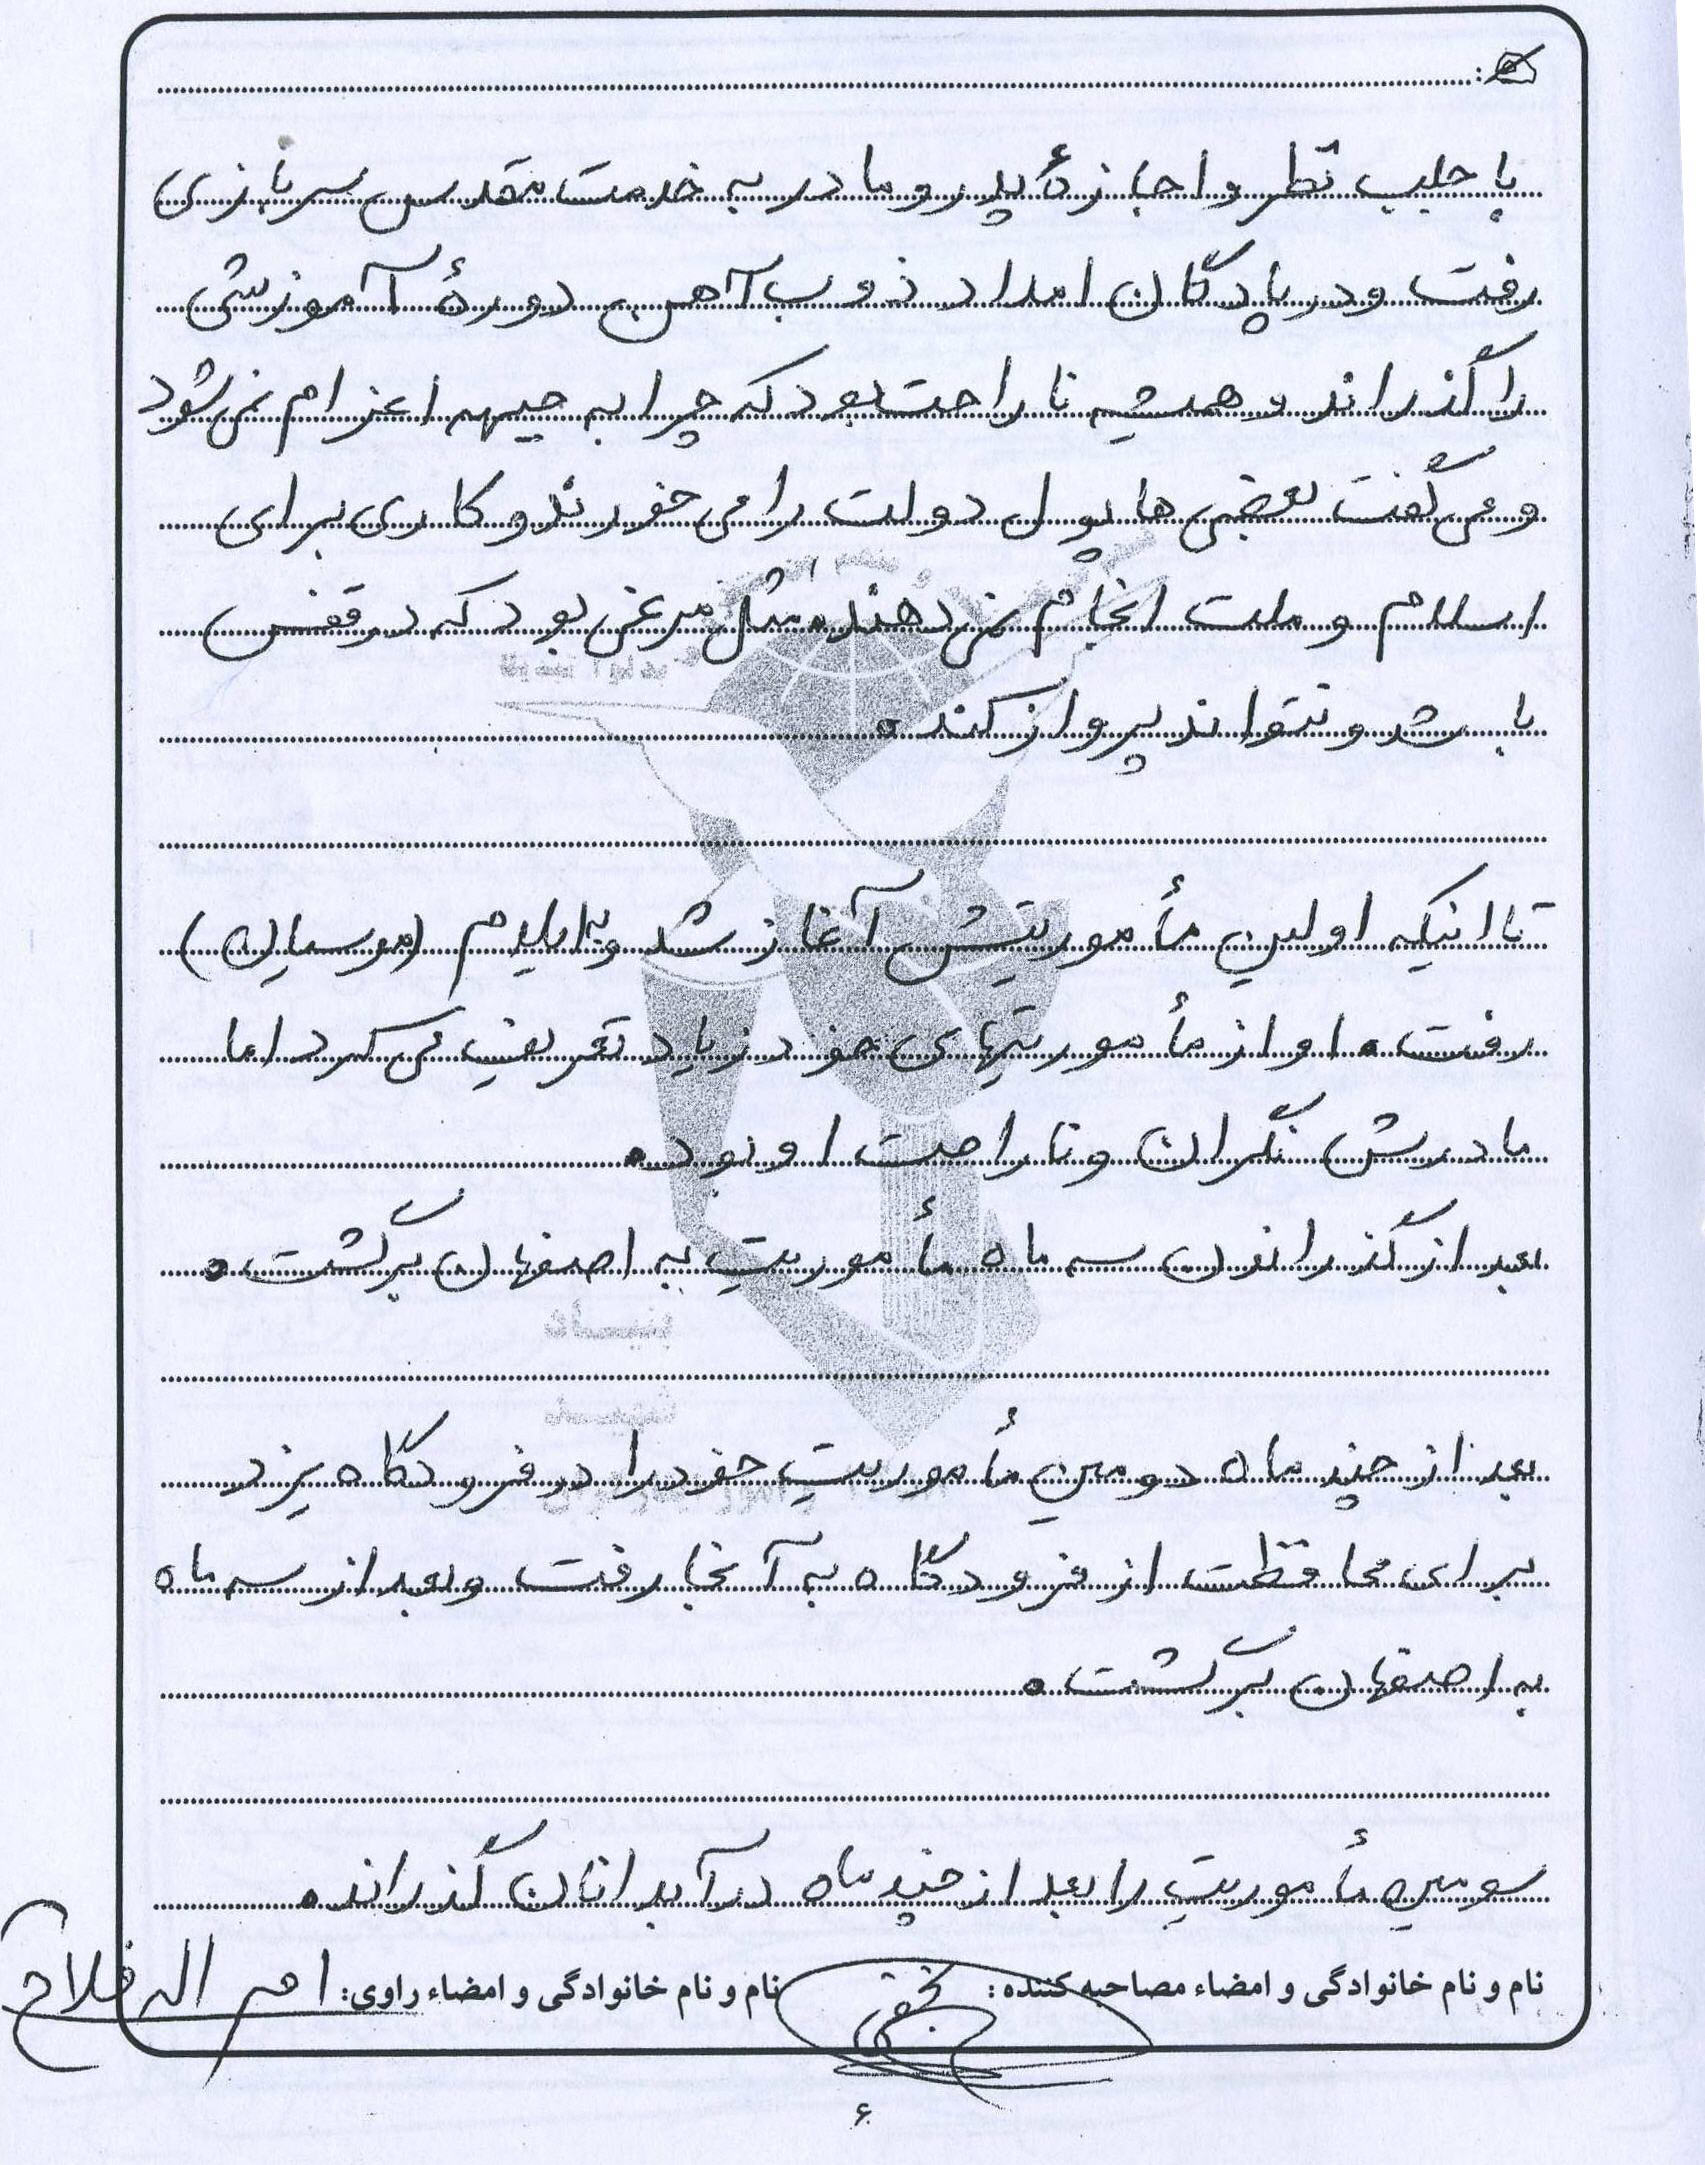 با جلب نظر و اجازهٔ پدر و مادر به خدمت مقدس سربازی
رفت و در پادگان امداد ذوب آهن دورهٔ آموزشی
را گذراند و همیشه ناراحت بود که چرا به جبهه اعزام نمی شود
و می گفت بعضی ها پول دولت را می خورند و کاری برای
اسلام و ملت انجام نمی دهند. مثل مرغی بود که در قفس
باشد و نتواند پرواز کند.
تا اینکه اولین مأموریتش آغاز شد و به ایلام (مورسیان)
رفت. او از مأموریتهای خود زیاد تعریف می کرد اما
مادرش نگران و ناراحت او بود.
بعد از گذراندن سه ماه مأموریت به اصفهان برگشت.
بعد از چند ماه دومین مأموریت خود را در فرودگاه یزد
برای محافظت از فرودگاه به آنجا رفت و بعد از سه ماه
به اصفهان برگشت.
سومین مأموریت را بعد از چند ماه در آبدانان گذراند.
نام و نام خانوادگی و امضاء مصاحبه کننده: نجفی
نام و نام خانوادگی و امضاء راوی: امر اله فلاح
بنیاد
شهید
۶